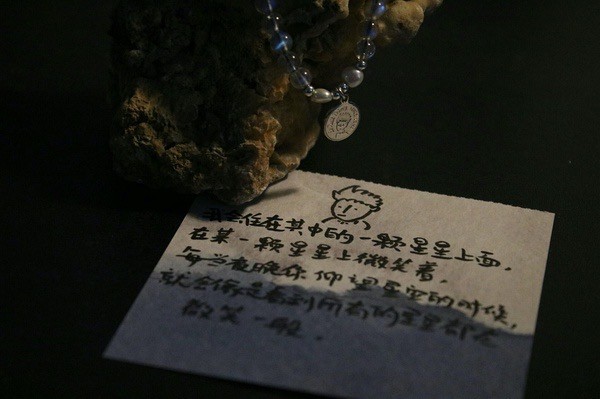 我会住在其中的一颗星星上面，
在某一颗星星上微笑着，
每当夜晚你仰望星空的时候，
就会像是看到所有的星星都在
微笑一般．